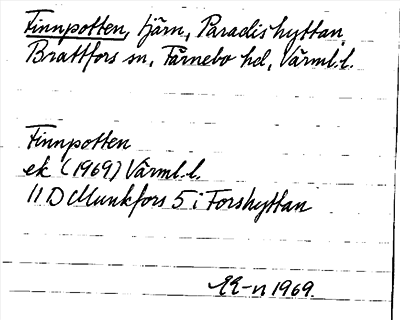 Finnpotten, tjärn, Paradishyttan,
Brattfors sn, Färnebo hd, Värml. l.
Finnpotten
ek (1969) Värml. l.
11 D Munkfors 5 i Forshyttan
1969.